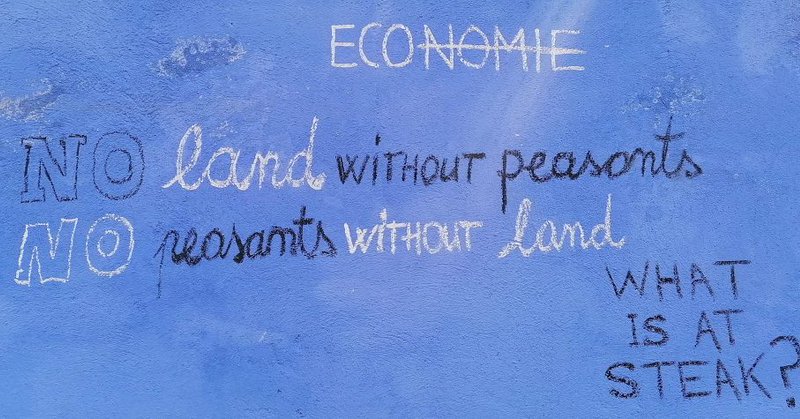 ECONOMIE
NO land WITHOUT peasants
NO peasants WITHOUT land
WHAT
IS AT
STEAK?